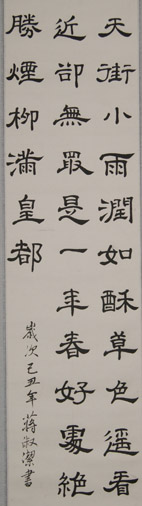 天街小雨潤如酥草色遥看
近卻無最是一年春好處絕
勝煙柳滿皇都
歲次己丑年蔣淑潔書